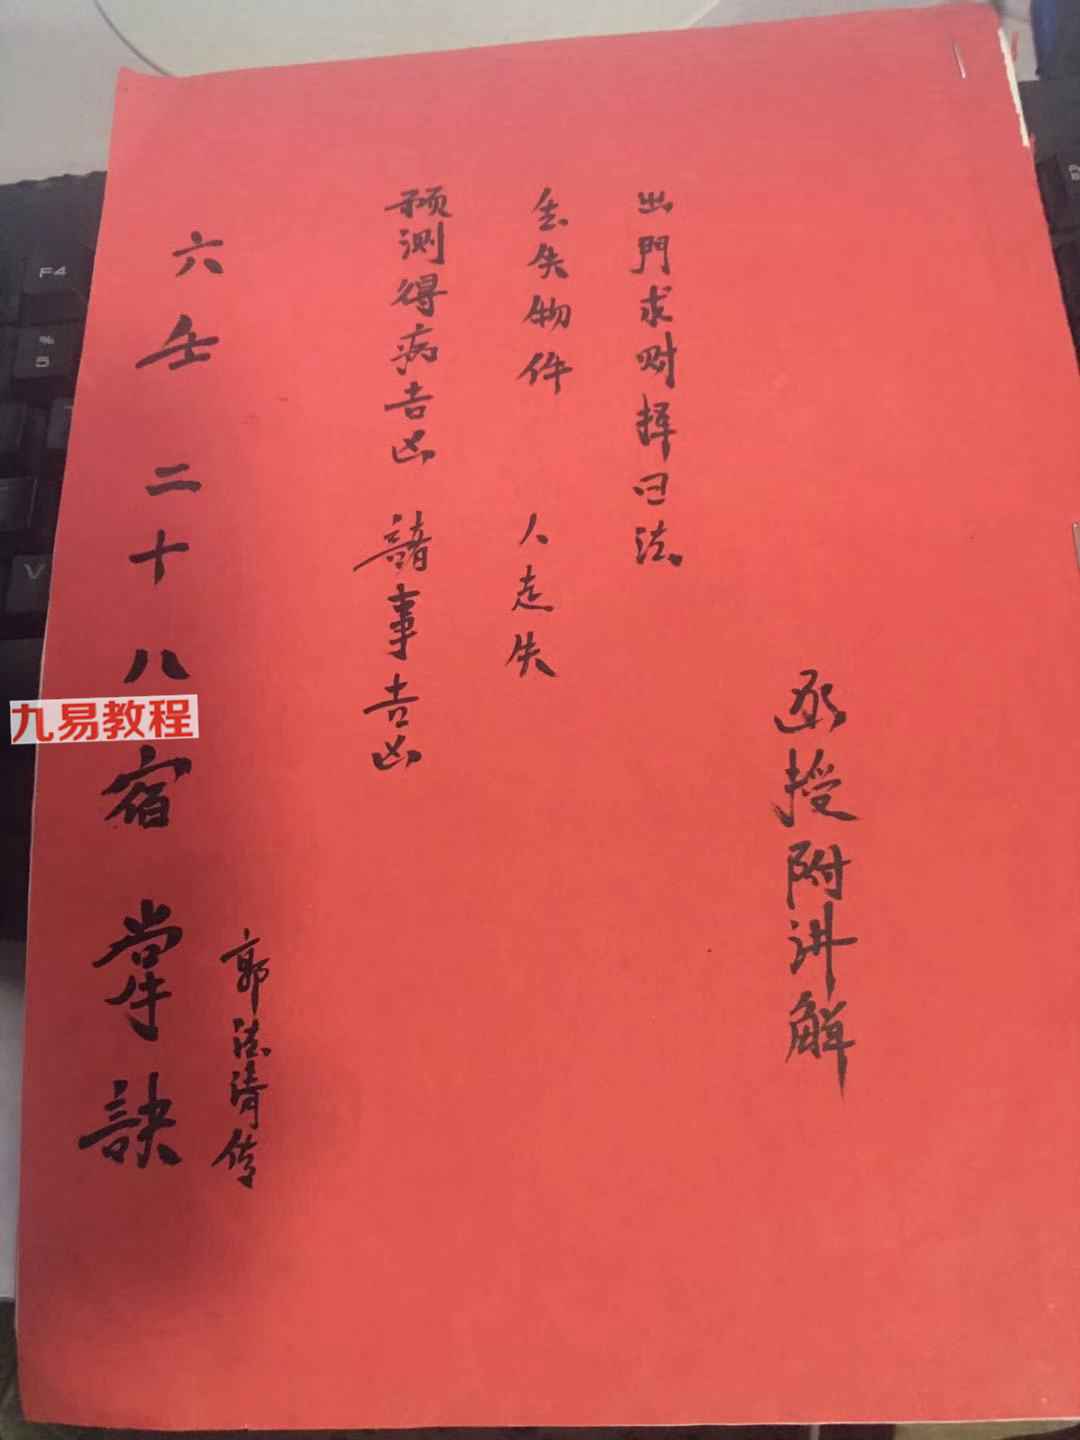 函授附讲解
出門求财择日法
丢失物件 人走失
预测得病吉凶 諸事吉凶
郭法清传
六壬二十八宿掌訣
九易教程
F4
%
5
V